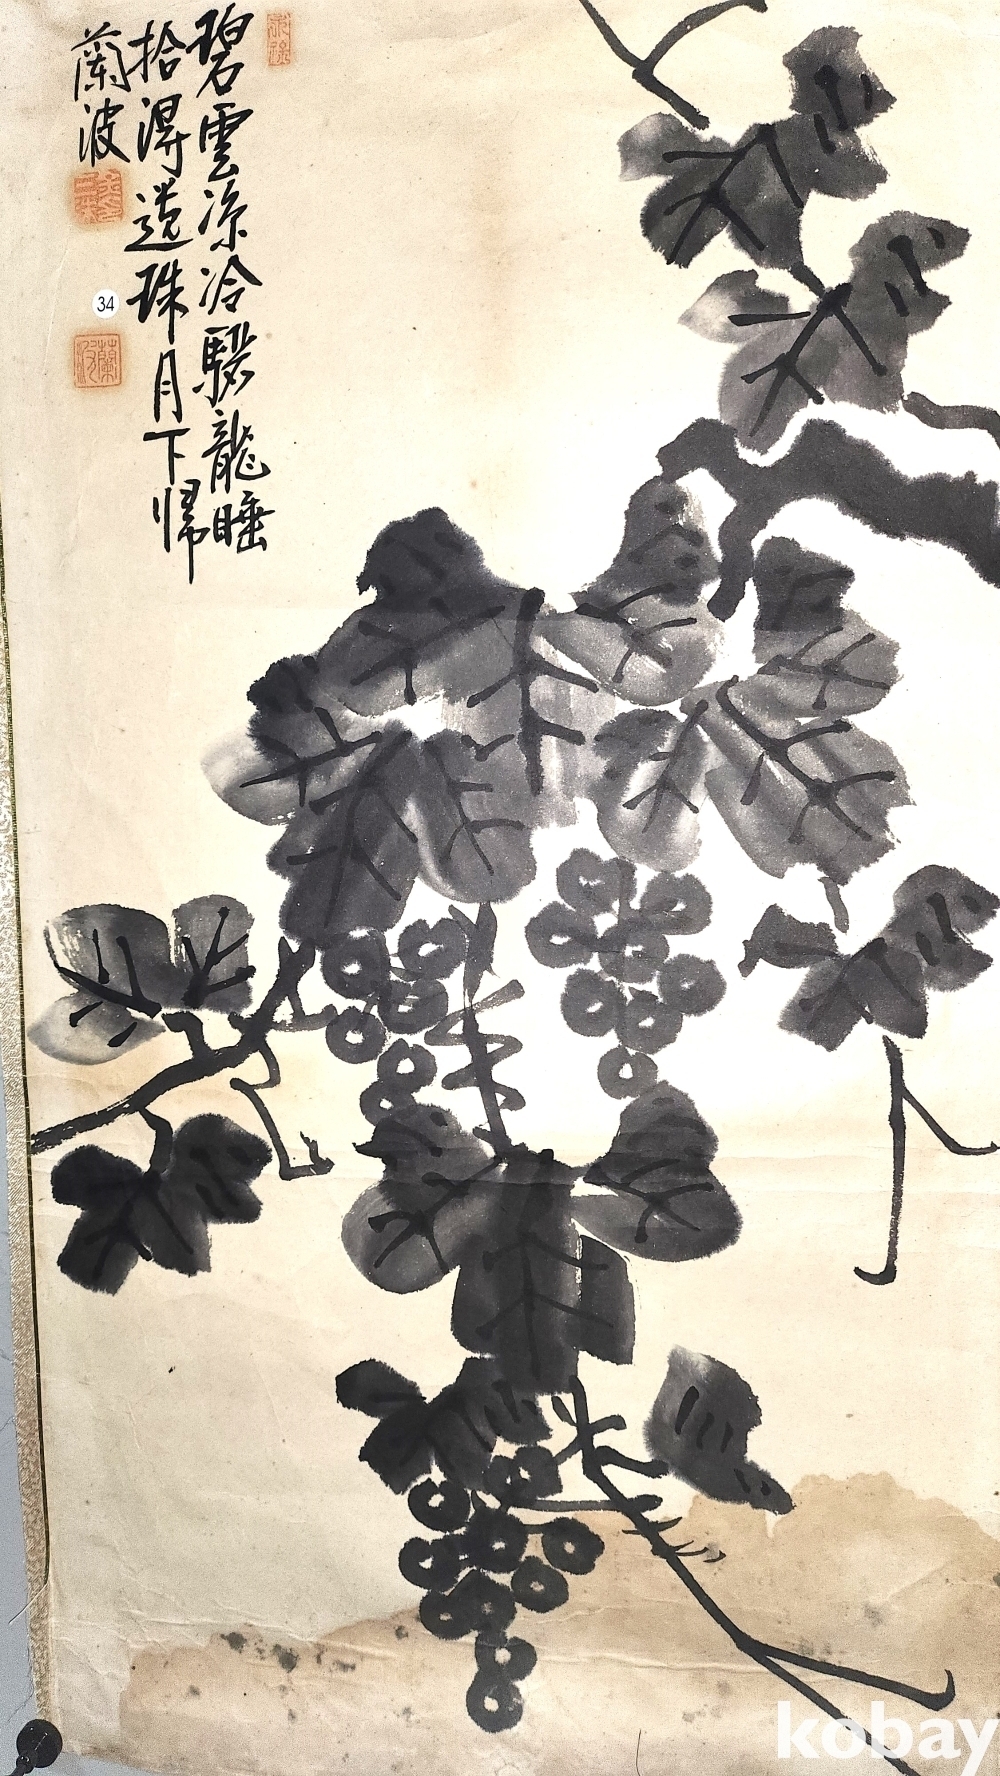 碧雲凉冷驪龍睡
拾得遺珠月下歸
蘭波
34
蘭波
kobay